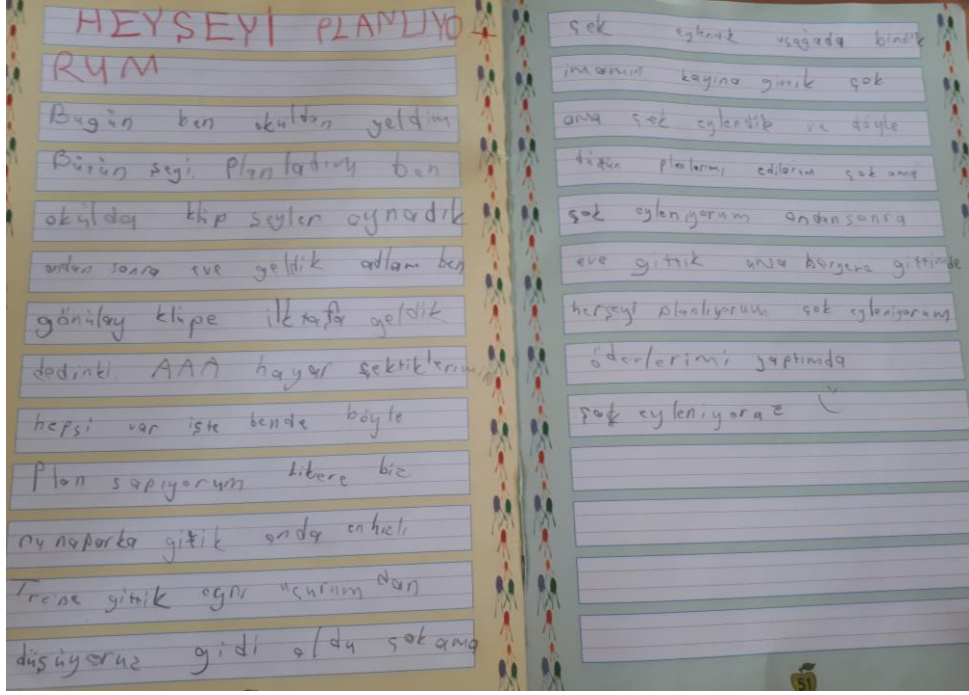 HEYŞEYİ PLANLIYO
RUM
Bugün ben okuldan geldim
Bürün şeyi Planladım ben
okulda klip şeyler oynadık
ondan sonra eve geldik adlam ben
gönülay klipe ilk geldik
dedimki AAA hayar şektiklerim
hepsi var işte bende böyle
Plan sapıyorum biz
gittik onda enhızlı
Trene gittik aynı uçurumdan
düşüyoruz gidi oldu şok ama
şek eylendik uşağada bindik
kayına gittik çok
ama şek eylendik ve döyle
planlarımı edilorum şok ama
şok eyleniyorum andansonra
eve gittik gittimde
herşeyi planlıyorum çok eyleniyorum
öderlerimi yaptımda
şok eyleniyoraz
51